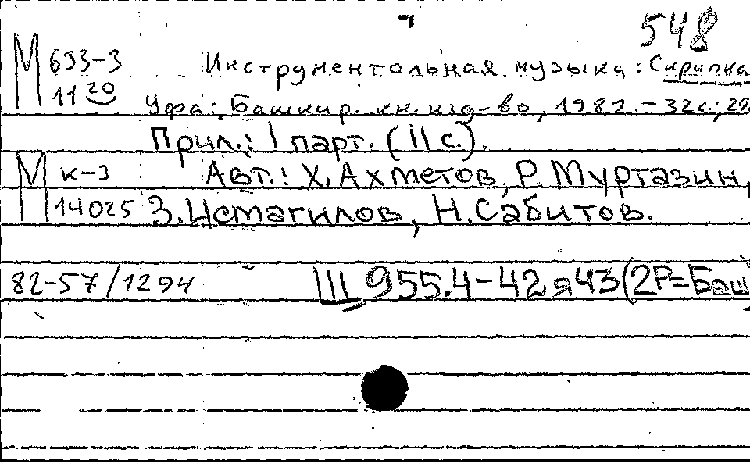 548
М 693-3 Инструментальная музыка: Скрипка
11 20 Уфа: Башкир. кн. изд-во, 1982. - 32с.; 29
Прил.: 1 парт. (11 с.).
М к-3 Авт.: Х. Ахметов, Р. Муртазин,
14025 З. Исмагилов, Н. Сабитов.
82-57/1294 III 955.4-42 я43(2Р=Баш